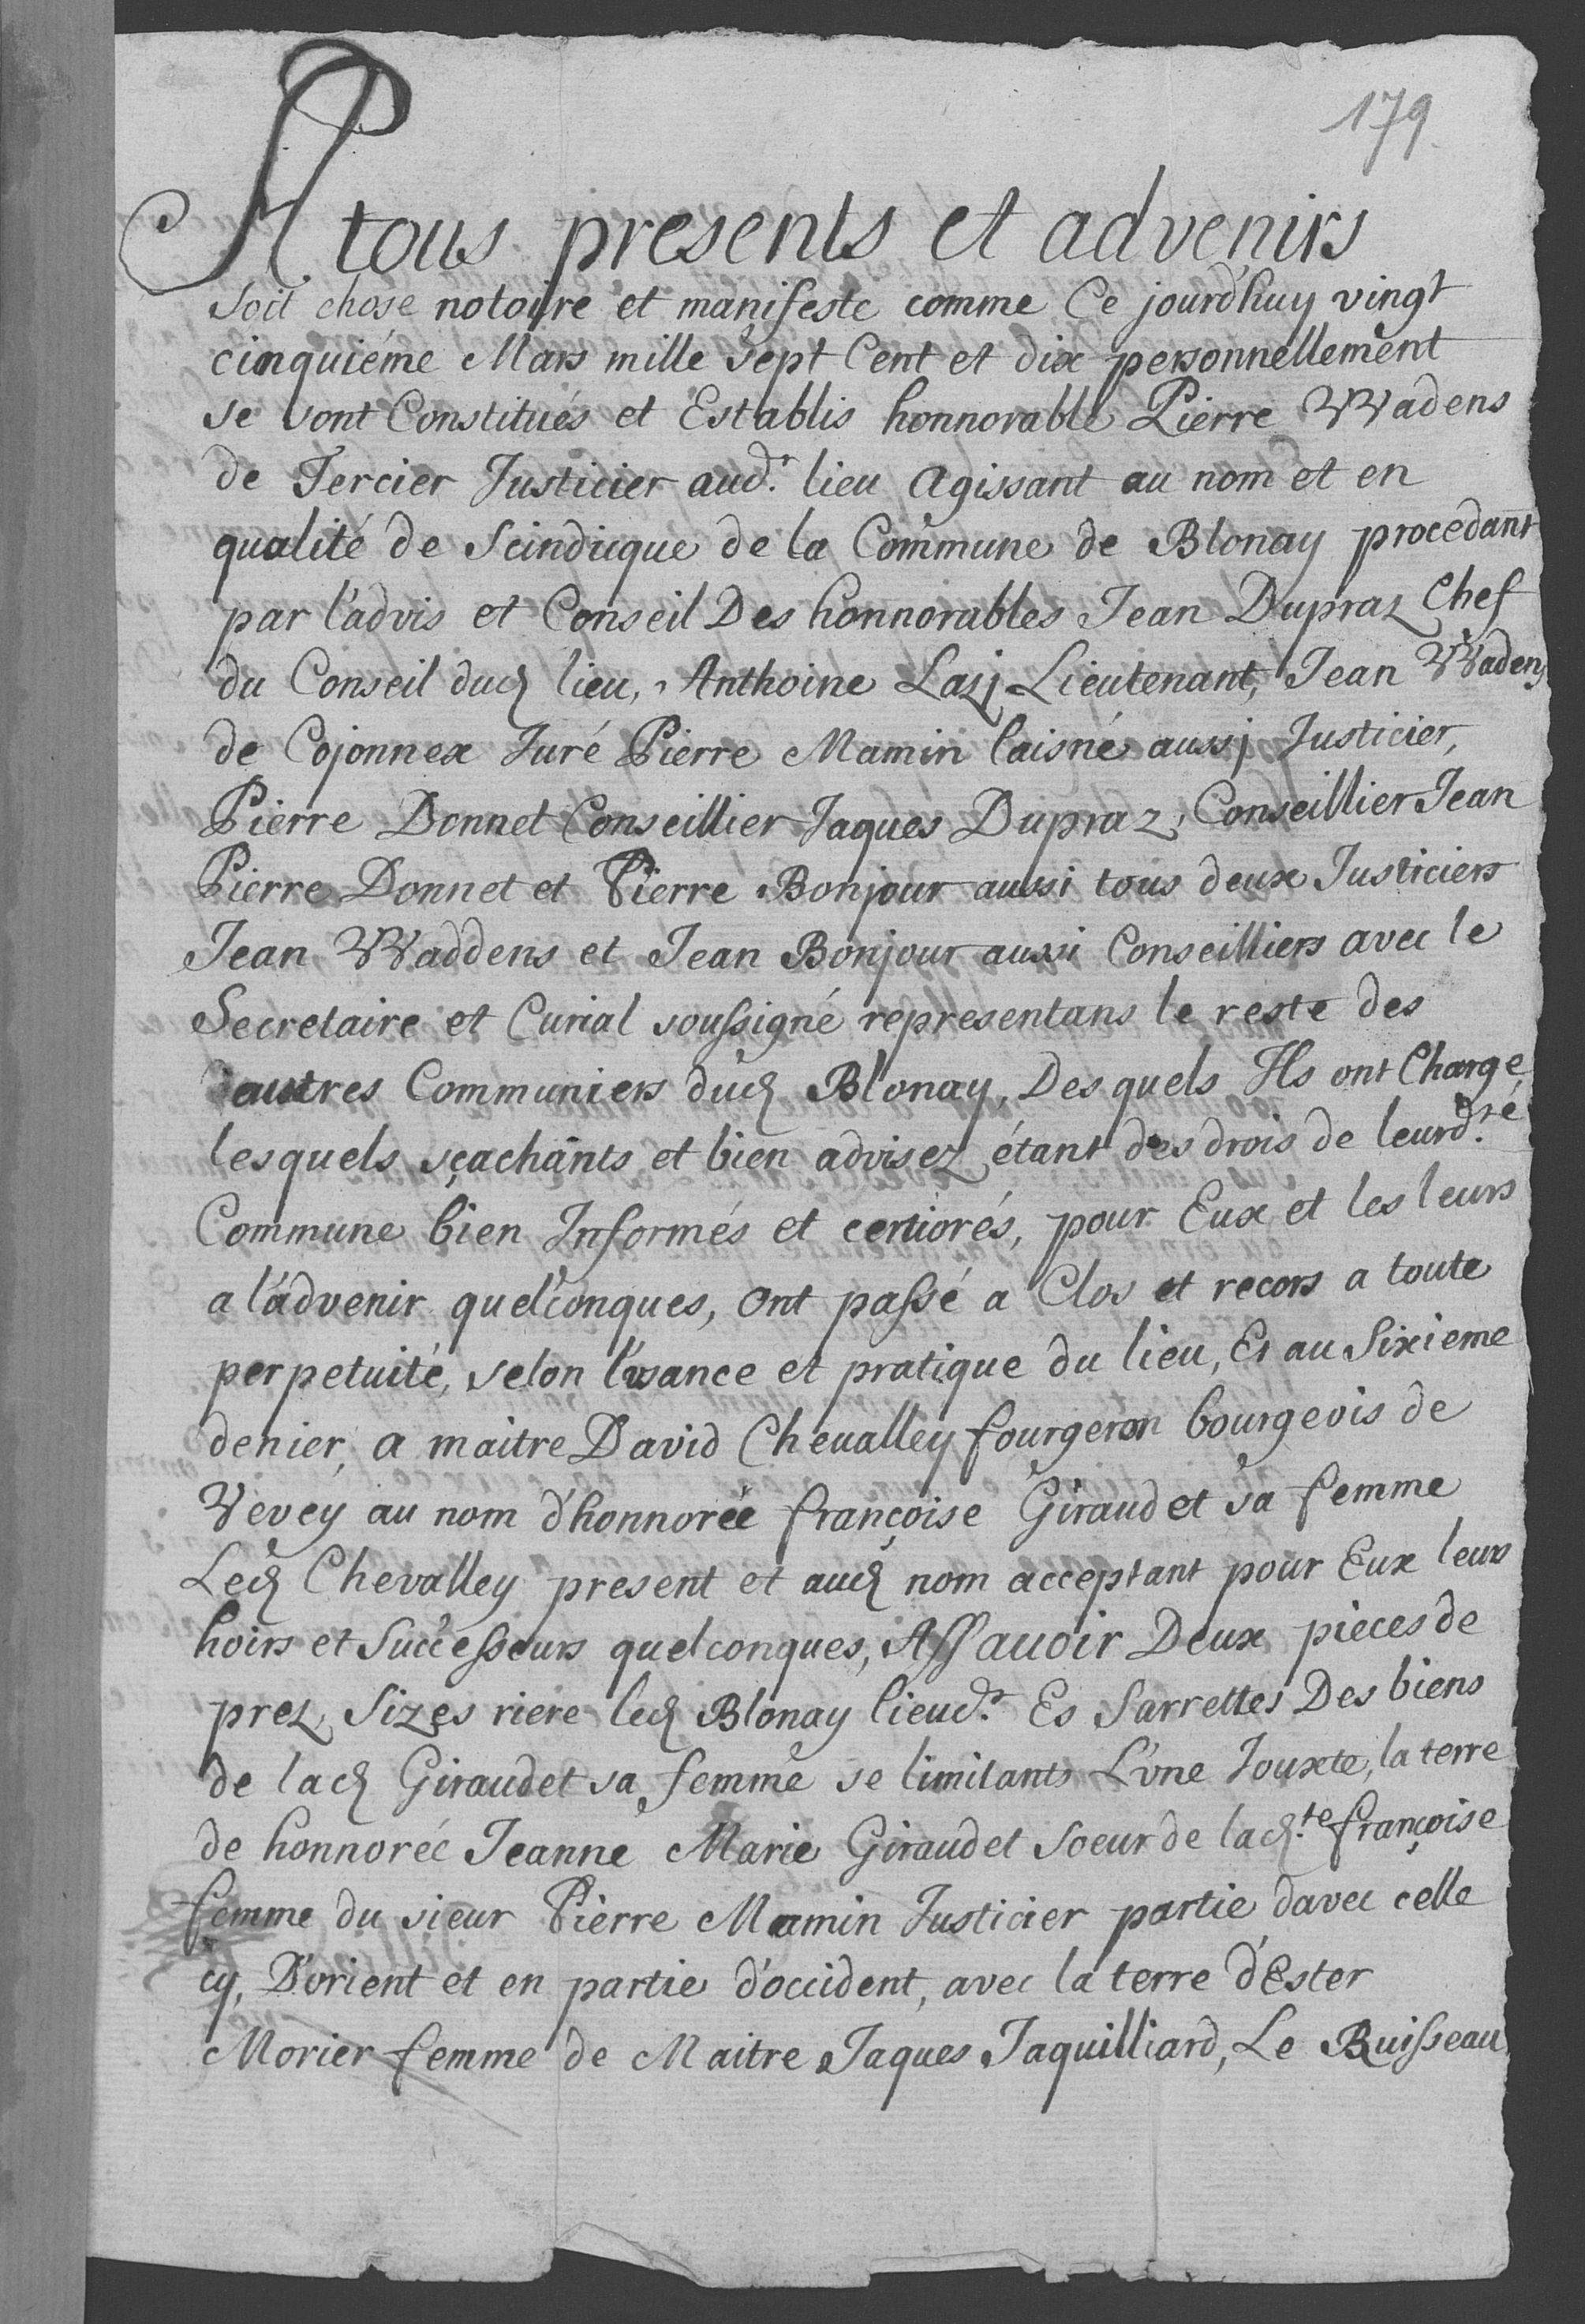 179.
A tous presents et advenirs
soit chose notoire et manifeste comme Ce jourd'huy vingt
cinquiéme Mars mille sept Cent et dix personnellement
se sont Constitués et Establis honnorable Pierre Wadens
de Tercier Justicier aud.t lieu agissant au nom et en
qualité de Scindicque de la Commune de Blonay procedant
par l'advis et Conseil Des honnorables Jean Dupraz Chef
du Conseil dud lieu, Anthoine Lazj Lieutenant, Jean Wadens
de Cojonnex Juré Pierre Mamin laisné aussj Justicier,
Pierre Donnet Conseillier Jaques Dupraz, Conseillier Jean
Pierre Donnet et Pierre Bonjour aussi tous deux Justiciers
Jean Waddens et Jean Bonjour aussi Conseilliers avec le
Secretaire et Curial soussigné representans le reste des
autres Communiers dud Blonay, Des quels Ils ont Charge,
lesquels sçachants et bien advisez étant des drois de leurd.te
Commune bien Informés et certiorés, pour Eux et les leurs
a l'advenir quelconques, ont passé a Clos et recors a toute
perpetuité, selon l'usance et pratique du lieu, Et au Sixieme
denier, a maitre David Chevalley fourgeron bourgeois de
Vevey au nom d'honnorée françoise Giraudet sa femme
Led Chevalley present et aud nom acceptant pour Eux leurs
hoirs et Successeurs quelconques, Assavoir Deux pieces de
prez, Sizes riere led Blonay lieud.t Es Sarrettes Des biens
de lad Giraudet sa femme se limitants L'une Jouxte, la terre
de honnorée Jeanne Marie Giraudet soeur de lad.te françoise
femme du sieur Pierre Mamin Justicier partie davec celle
cy, D'orient et en partie d'occident, avec la terre d'Ester
Morier femme de Maitre Jaques Jaquilliard, Le Ruisseau